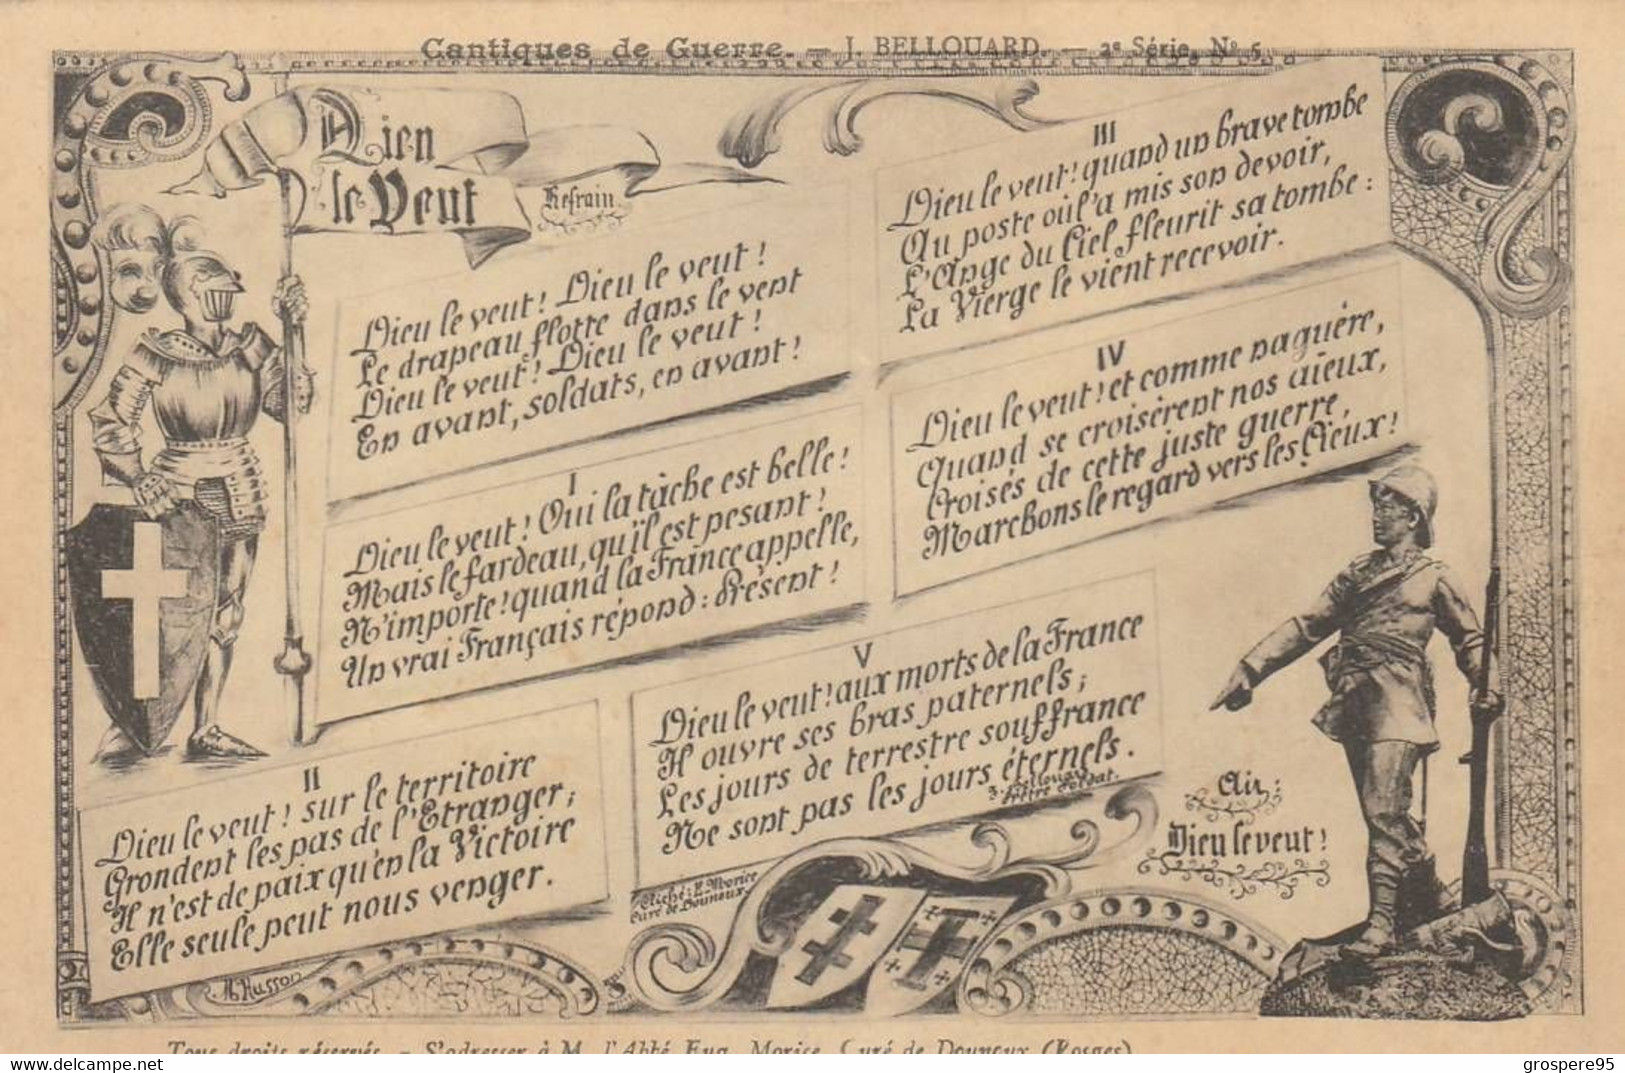 Cantiques de Guerre. — J. BELLOUARD. — 2e Série, No 5
Dieu
le Veut
Refrain
Dieu le veut ! Dieu le veut !
Le drapeau flotte dans le vent
Dieu le veut ! Dieu le veut !
En avant, soldats, en avant !
I
Dieu le veut ! Oui la tâche est belle !
Mais le fardeau, qu'il est pesant !
N'importe ! quand la France appelle,
Un vrai Français répond : Présent !
II
Dieu le veut ! sur le territoire
Grondent les pas de l'Etranger ;
Il n'est de paix qu'en la Victoire
Elle seule peut nous venger.
M Husson
III
Dieu le veut ! quand un brave tombe
Au poste où l'a mis son devoir,
L'Ange du Ciel fleurit sa tombe :
La Vierge le vient recevoir.
IV
Dieu le veut ! et comme naguère,
Quand se croisèrent nos aïeux,
Croisés de cette juste guerre,
Marchons le regard vers les Cieux !
V
Dieu le veut ! aux morts de la France
Il ouvre ses bras paternels ;
Les jours de terrestre souffrance
Ne sont pas les jours éternels.
J. Bellouard
Prêtre Soldat.
Cliché : E. Morice
Curé de Dounoux.
Air :
Dieu le veut !
Tous droits réservés. - S'adresser à M. l'Abbé Eug. Morice, Curé de Dounoux (Vosges)
grospere95